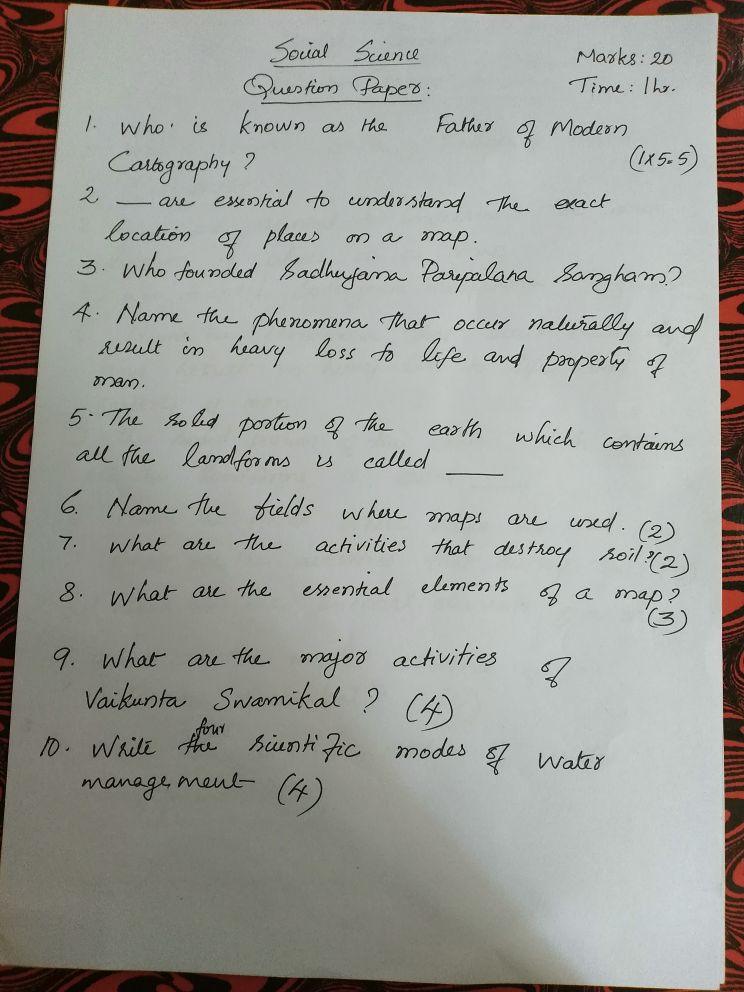 Social Science
Marks: 20
Question Paper:
Time: 1hr.
1. Who is known as the Father of Modern
Cartography?
(1x5=5)
2 ___ are essential to understand the exact
location of places on a map.
3. Who founded Sadhujana Paripalana Sangham?
4. Name the phenomena that occur naturally and
result in heavy loss to life and property of
man.
5. The solid portion of the earth which contains
all the landforms is called ___
6. Name the fields where maps are used. (2)
7. What are the activities that destroy soil? (2)
8. What are the essential elements of a map?
(3)
9. What are the major activities of
Vaikunta Swamikal? (4)
four
10. Write the scientific modes of water
management (4)